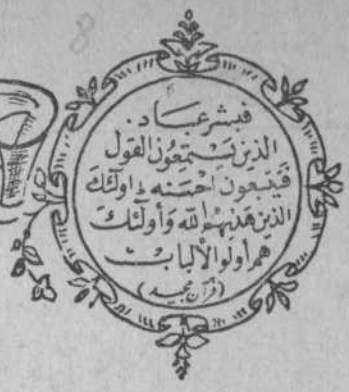 8
فبشر عباد.
الذين يستمعون القول
فيتبعون احسنه ط اولٓئك
الذين هدٰىهم الله وأولٓئك
هم أولوا الألباب
(قرآن مجيد)